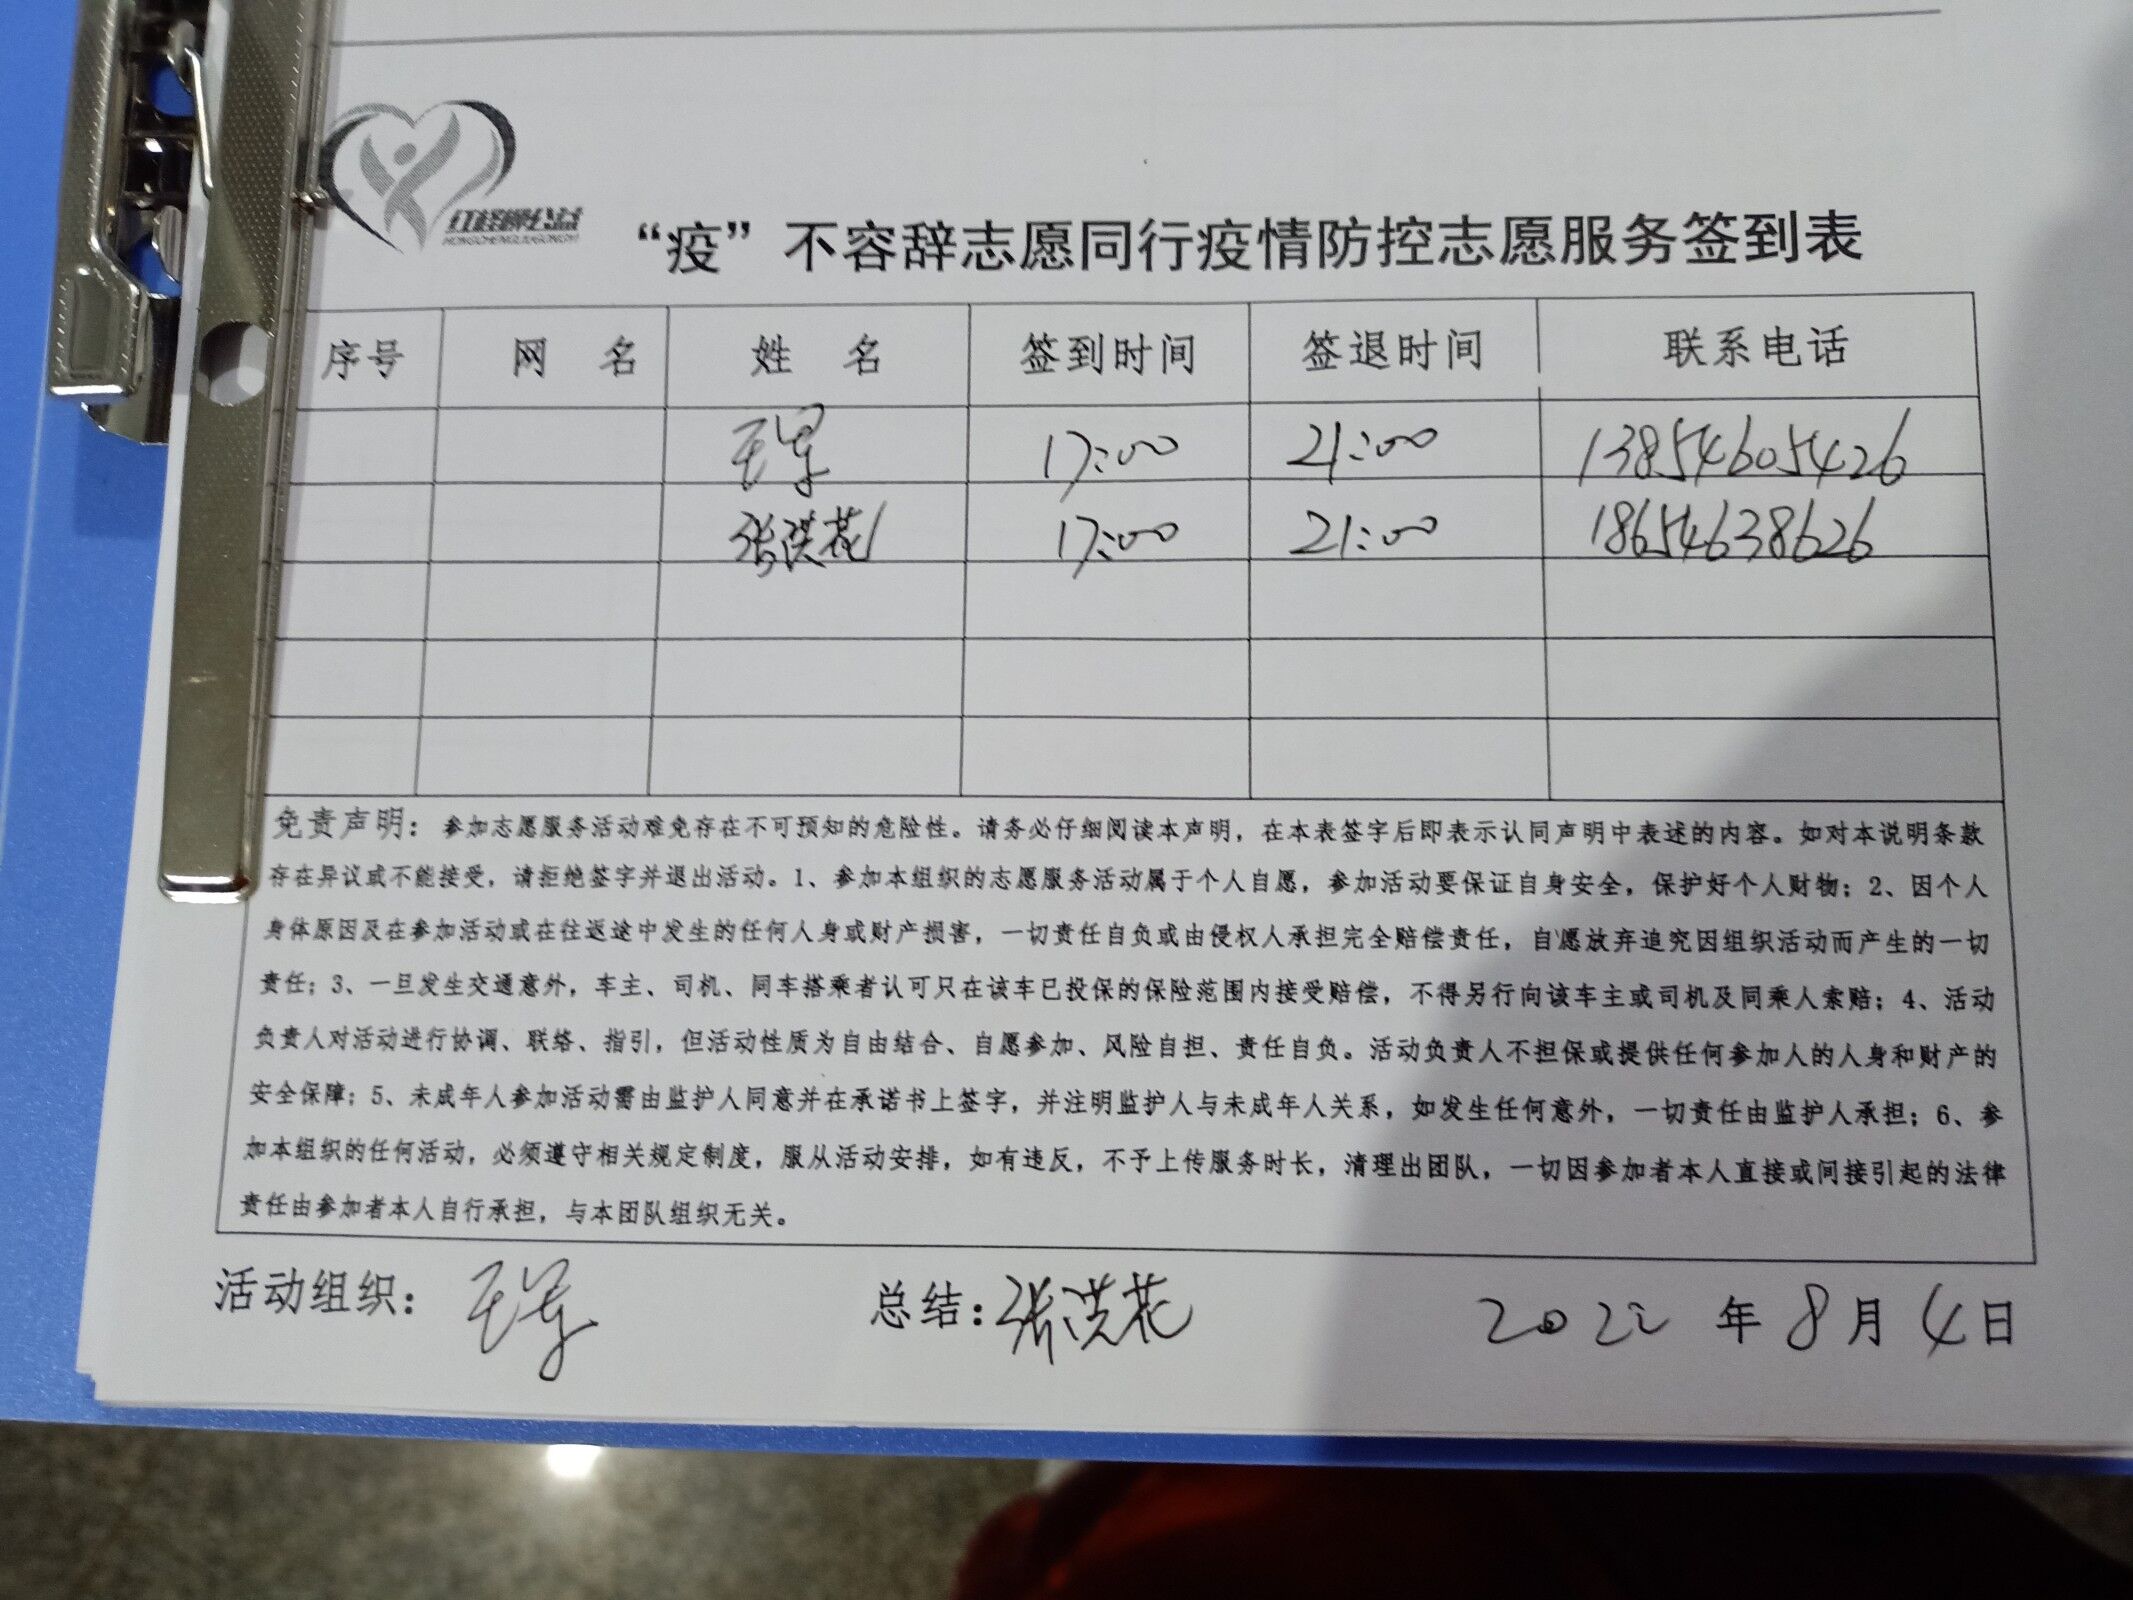 红橙解公益
HONGCHENGJIEGONGYI
“疫”不容辞志愿同行疫情防控志愿服务签到表
序号 网 名 姓 名 签到时间 签退时间 联系电话
17:00 21:00 13854605426
张洪花 17:00 21:00 18654638626
免责声明：参加志愿服务活动难免存在不可预知的危险性。请务必仔细阅读本声明，在本表签字后即表示认同声明中表述的内容。如对本说明条款
存在异议或不能接受，请拒绝签字并退出活动。1、参加本组织的志愿服务活动属于个人自愿，参加活动要保证自身安全，保护好个人财物；2、因个人
身体原因及在参加活动或在往返途中发生的任何人身或财产损害，一切责任自负或由侵权人承担完全赔偿责任，自愿放弃追究因组织活动而产生的一切
责任；3、一旦发生交通意外，车主、司机、同车搭乘者认可只在该车已投保的保险范围内接受赔偿，不得另行向该车主或司机及同乘人索赔；4、活动
负责人对活动进行协调、联络、指引，但活动性质为自由结合、自愿参加、风险自担、责任自负。活动负责人不担保或提供任何参加人的人身和财产的
安全保障；5、未成年人参加活动需由监护人同意并在承诺书上签字，并注明监护人与未成年人关系，如发生任何意外，一切责任由监护人承担；6、参
加本组织的任何活动，必须遵守相关规定制度，服从活动安排，如有违反，不予上传服务时长，清理出团队，一切因参加者本人直接或间接引起的法律
责任由参加者本人自行承担，与本团队组织无关。
活动组织： 总结：张洪花 2022年8月4日